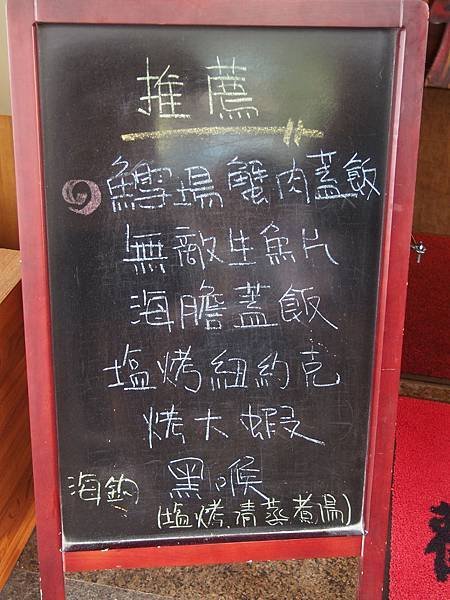 推薦
鱈場蟹肉蓋飯
無敵生魚片
海膽蓋飯
塩烤紐約克
烤大蝦
海釣 黑喉
(塩烤.清蒸.煮湯)